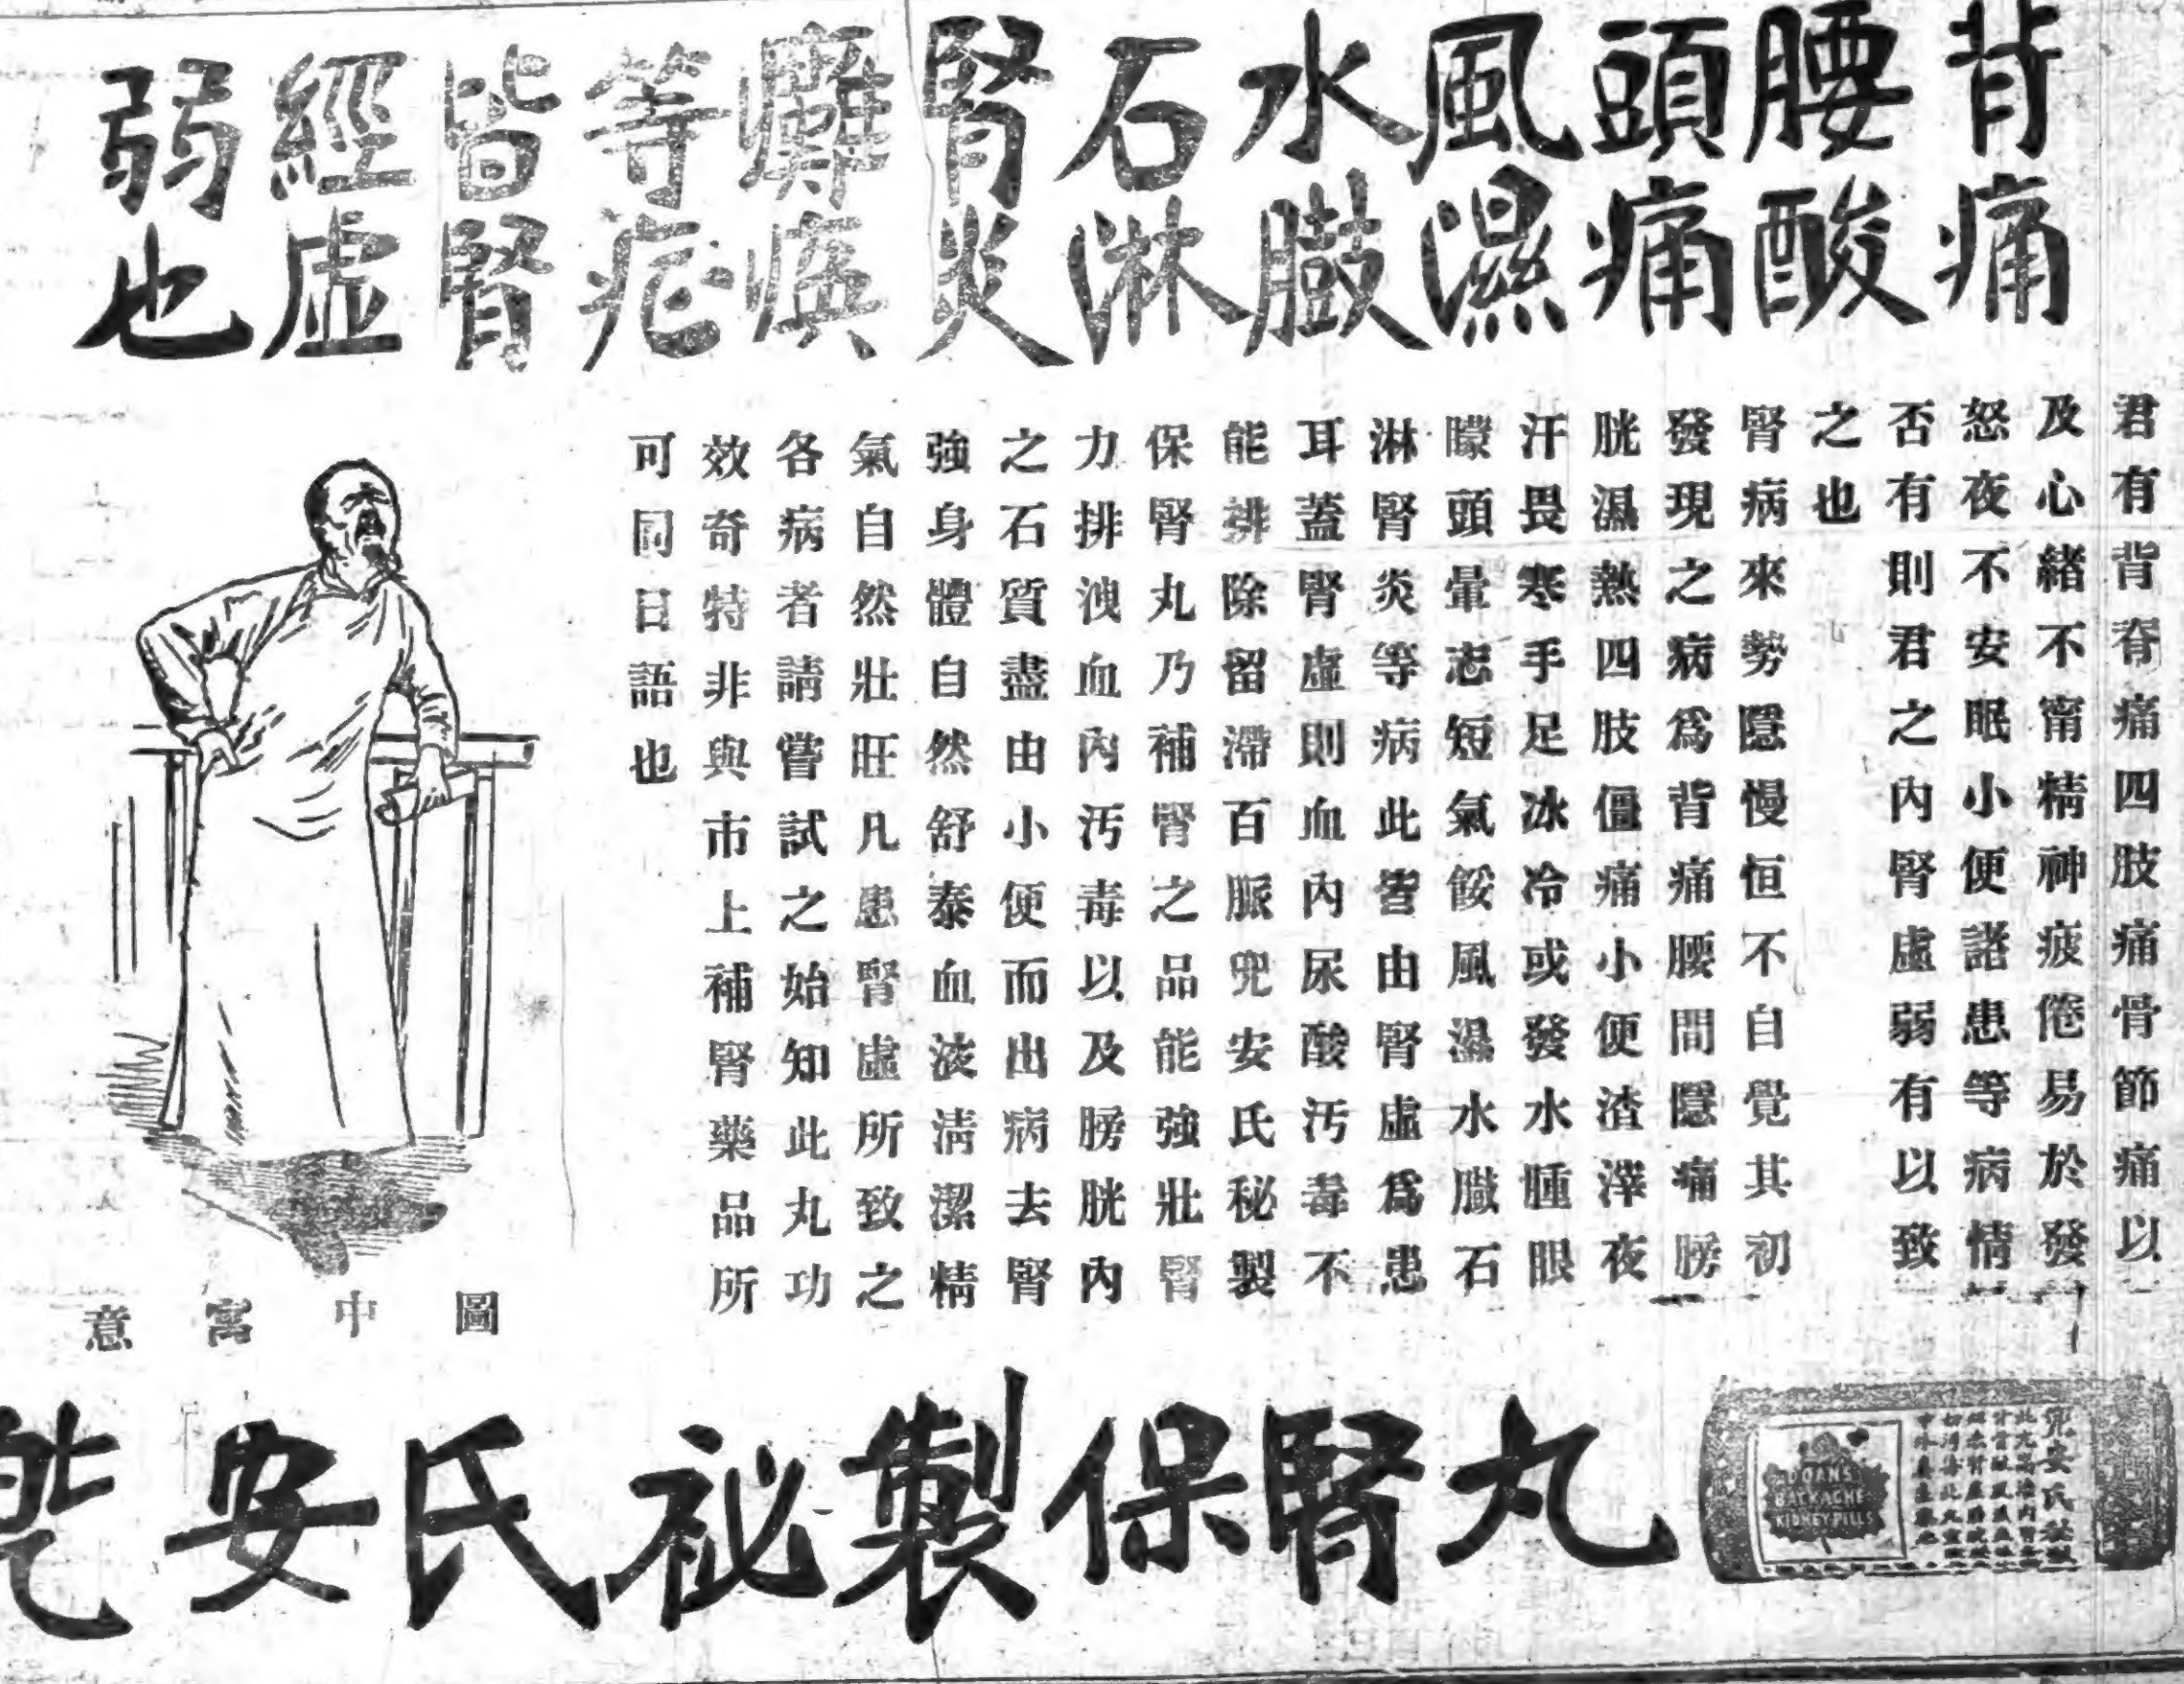 背痛
腰酸
頭痛
風濕
水臌
石淋
腎炎
癱瘓
等症
皆腎
經虛
弱也
君有背脊痛四肢痛骨節痛以
及心緒不甯精神疲倦易於發
怒夜不安眠小便諸患等病情
否有則君之內腎虛弱有以致
之也
腎病來勢隱慢恒不自覺其初
發現之病為背痛腰間隱痛膀
胱濕熱四肢僵痛小便渣滓夜
汗畏寒手足冰冷或發水腫眼
矇頭暈志短氣餒風濕水臌石
淋腎炎等病此皆由腎虛為患
耳蓋腎虛則血內尿酸污毒不
能排除留滯百脈兜安氏秘製
保腎丸乃補腎之品能強壯腎
力排洩血內污毒以及膀胱內
之石質盡由小便而出病去腎
強身體自然舒泰血液清潔精
氣自然壯旺凡患腎虛所致之
各病者請嘗試之始知此丸功
效奇特非與市上補腎藥品所
可同日語也
圖中寓意
安氏祕製保腎丸
兜安氏
DOANS
BACKACHE
KIDNEY PILLS